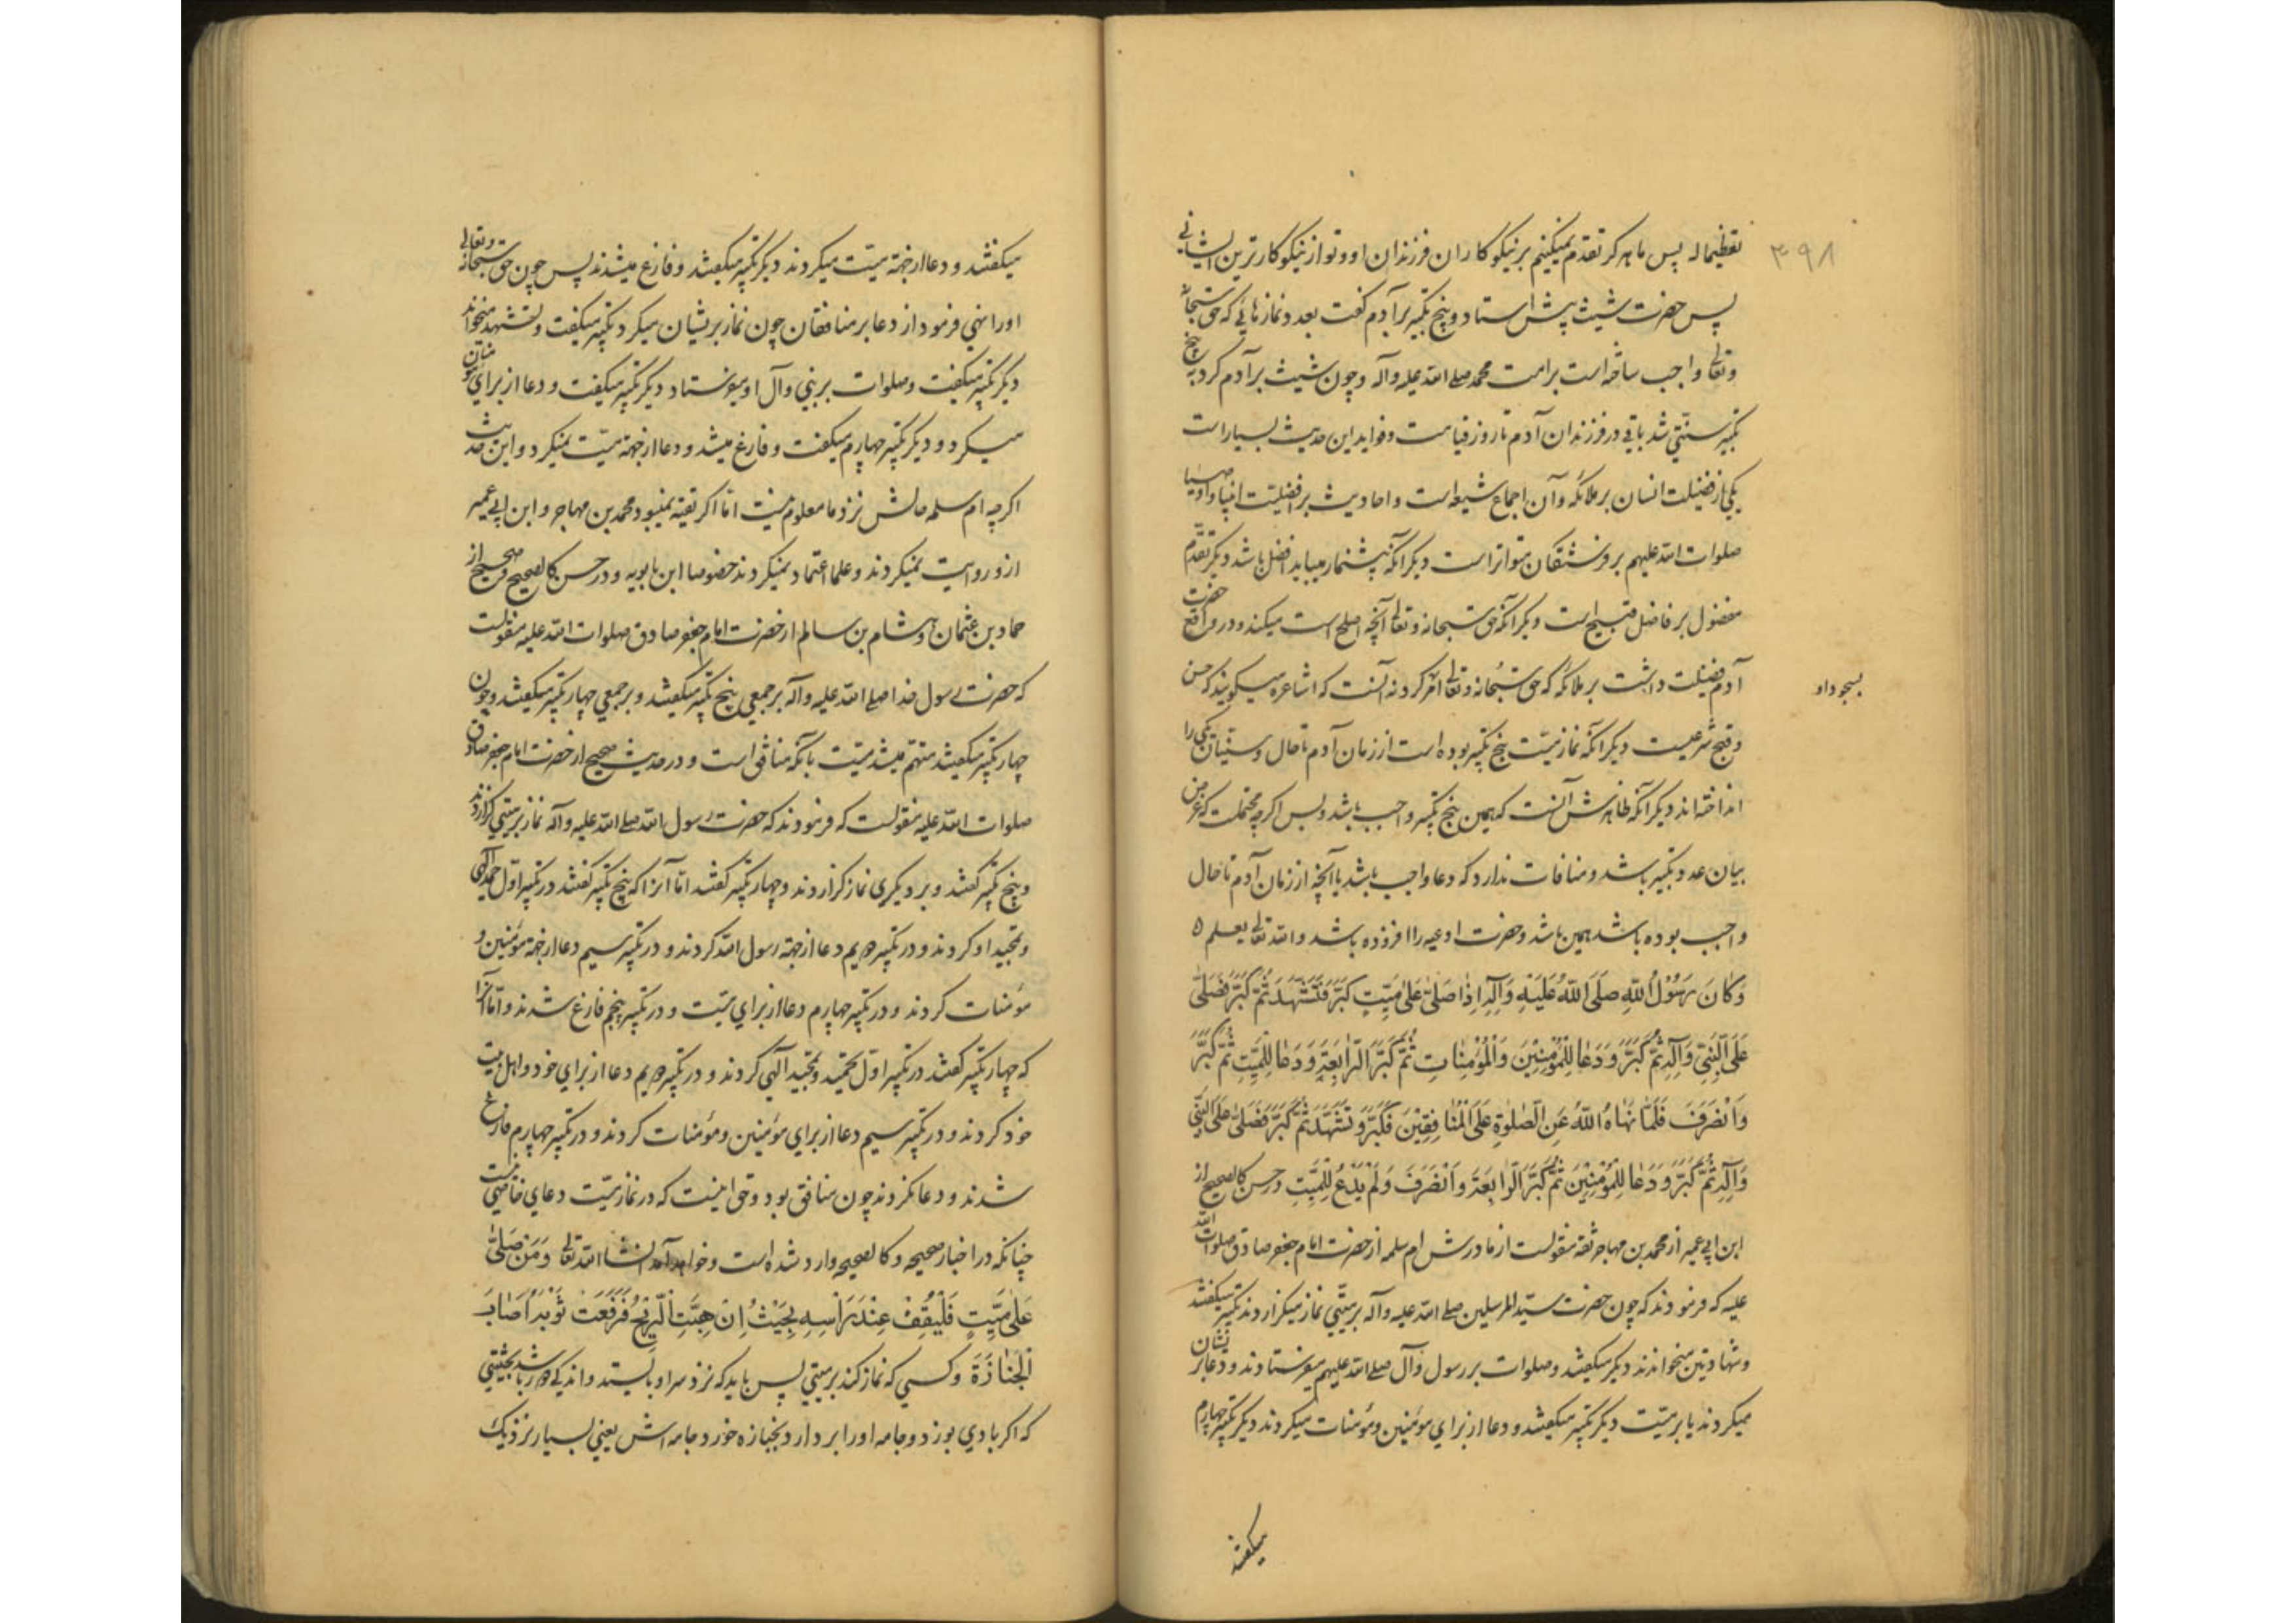 ۳۹۸
تعظیما له پس ما هرگز تقدم نمیکنیم بر نیکوکاران فرزندان او و تو از نیکوکارترین ایشانی
پس حضرت شیث پیش استاد و پنج تکبیر بر آدم گفت بعدد نمازهائی که حق سبحانه
و تعالی واجب ساخته است بر امت محمد صلی الله علیه و آله و چون شیث بر آدم کرد پنج
تکبیر سنتی شد باقی در فرزندان آدم تا روز قیامت و فواید این حدیث بسیار است
یکی از فضیلت انسان بر ملائکه و آن اجماع شیعه است و احادیث بر افضلیت انبیا و اوصیا
صلوات الله علیهم بر فرشتگان متواتر است دیگر آنکه پیشنماز میباید افضل باشد دیگر تقدم
مفضول بر فاضل قبیح است دیگر آنکه حق سبحانه و تعالی آنچه اصلح است میکند و در واقع حضرت
آدم فضیلت داشت بر ملائکه که حق سبحانه و تعالی امر کرد نه آنست که اشاعره میگویند که حسن
بسجود او
و قبح شرعیست دیگر آنکه نماز میت پنج تکبیر بوده است از زمان آدم تا حال و سنیان یکی را
انداخته‌اند دیگر آنکه ظاهرش آنست که همین پنج تکبیر واجب باشد و بس اگرچه محتملست که غرض
بیان عدد تکبیر باشد و منافات ندارد که دعا واجب باشد یا آنچه از زمان آدم تا حال
واجب بوده باشد همین باشد و حضرت ادعیه را افزوده باشد و الله تعالی یعلم ه
وَكَانَ رَسُوْلُ اللّٰهِ صَلَّى اللّٰهُ عَلَيْهِ وَآلِهِ اِذَا صَلّٰى عَلٰى مَيِّتٍ كَبَّرَ فَتَشَهَّدَ ثُمَّ كَبَّرَ فَصَلّٰى
عَلَى النَّبِيِّ وَآلِهِ ثُمَّ كَبَّرَ وَدَعَا لِلْمُؤْمِنِيْنَ وَالْمُؤْمِنَاتِ ثُمَّ كَبَّرَ الرَّابِعَةَ وَدَعَا لِلْمَيِّتِ ثُمَّ كَبَّرَ
وَانْصَرَفَ فَلَمَّا نَهَاهُ اللّٰهُ عَنِ الصَّلٰوةِ عَلَى الْمُنَافِقِيْنَ فَكَبَّرَ وَتَشَهَّدَ ثُمَّ كَبَّرَ فَصَلّٰى عَلَى النَّبِيِّ
وَآلِهِ ثُمَّ كَبَّرَ وَدَعَا لِلْمُؤْمِنِيْنَ ثُمَّ كَبَّرَ الرَّابِعَةَ وَانْصَرَفَ وَلَمْ يَدْعُ لِلْمَيِّتِ در حسن کالصحیح از
ابن ابی عمیر از محمد بن مهاجر ثقه منقولست از مادرش ام سلمه از حضرت امام جعفر صادق صلوات الله
علیه که فرمودند که چون حضرت سید المرسلین صلی الله علیه و آله بر میتی نماز میگزاردند تکبیر میگفتند
و شهادتین میخواندند دیگر میگفتند و صلوات بر رسول و آل صلی الله علیهم میفرستادند و دعا بر ایشان
میکردند یا بر میت دیگر تکبیر میگفتند و دعا از برای مؤمنین و مؤمنات میکردند دیگر تکبیر چهارم
میگفتند
میگفتند و دعا از جهة میت میکردند دیگر تکبیر میگفتند و فارغ میشدند پس چون حق سبحانه و تعالی
او را نهی فرمود از دعا بر منافقان چون نماز بر یشان میکرد تکبیر میگفت و تشهد میخواند
دیگر تکبیر میگفت و صلوات بر نبی و آل او میفرستاد دیگر تکبیر میگفت و دعا از برای مؤمنان
میکرد و دیگر تکبیر چهارم میگفت و فارغ میشد و دعا از جهة میت نمیکرد و این حدیث
اگرچه ام سلمه حالش نزد ما معلوم نیست اما اگر ثقه نمیبود محمد بن مهاجر و ابن ابی عمیر
ازو روایت نمیکردند و علما اعتماد نمیکردند خصوصا ابن بابویه و در حسن کالصحیح و صحیح از
حماد بن عثمان و هشام بن سالم از حضرت امام جعفر صادق صلوات الله علیه منقولست
که حضرت رسول خدا صلی الله علیه و آله بر جمعی پنج تکبیر میگفتند و بر جمعی چهار تکبیر میگفتند و چون
چهار تکبیر میگفتند متهم میشد میت بآنکه منافق است و در حدیث صحیح از حضرت امام جعفر صادق
صلوات الله علیه منقولست که فرمودند که حضرت رسول الله صلی الله علیه و آله نماز بر میتی گزاردند
و پنج تکبیر گفتند و بر دیگری نماز گزاردند و چهار تکبیر گفتند اما آنرا که پنج تکبیر گفتند در تکبیر اول حمد الهی
و تمجید او کردند و در تکبیر دویم دعا از جهة رسول الله کردند و در تکبیر سیم دعا از جهة مؤمنین و
مؤمنات کردند و در تکبیر چهارم دعا از برای میت و در تکبیر پنجم فارغ شدند و اما آنرا
که چهار تکبیر گفتند در تکبیر اول تحمید و تمجید الهی کردند و در تکبیر دویم دعا از برای خود و اهل بیت
خود کردند و در تکبیر سیم دعا از برای مؤمنین و مؤمنات کردند و در تکبیر چهارم فارغ
شدند و دعا نکردند چون منافق بود و حق اینست که در نماز میت دعای خاصی نیست
چنانکه در اخبار صحیحه و کالصحیحه وارد شده است و خواهد آمد انشاالله تعالی وَمَنْ صَلّٰى
عَلٰى مَيِّتٍ فَلْيَقِفْ عِنْدَ رَاْسِهِ بِحَيْثُ اِنْ هَبَّتِ الرِّيْحُ فَرَفَعَتْ ثَوْبَهُ اَصَابَ
الْجَنَازَةَ و کسی که نماز کند بر میتی پس باید که نزد سر او بایستد و اندکی دور باشد بحیثیتی
که اگر بادی بوزد و جامه او را بردارد بجنازه خورد جامه‌اش یعنی بسیار نزدیک